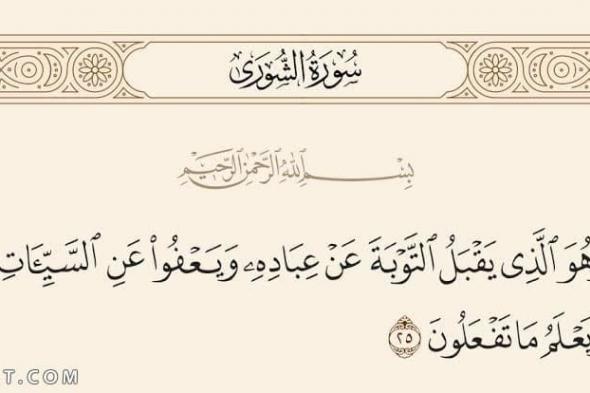 سُورَةُ الشُّورَىٰ
بِسْمِ ٱللَّهِ ٱلرَّحْمَٰنِ ٱلرَّحِيمِ
هُوَ ٱلَّذِى يَقْبَلُ ٱلتَّوْبَةَ عَنْ عِبَادِهِۦ وَيَعْفُوا۟ عَنِ ٱلسَّيِّـَٔاتِ
يَعْلَمُ مَا تَفْعَلُونَ ٢٥
T.COM